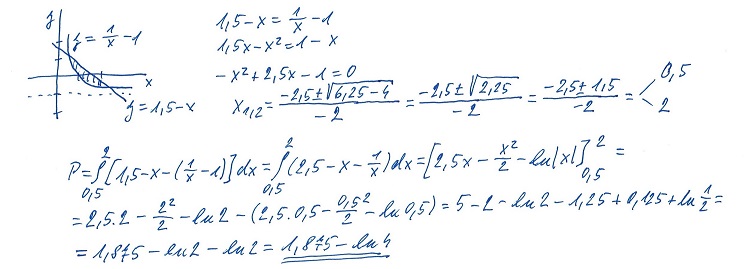 y
y = 1/x - 1
x
y = 1,5 - x
1,5 - x = 1/x - 1
1,5x - x² = 1 - x
-x² + 2,5x - 1 = 0
x₁,₂ = (-2,5 ± √(6,25 - 4))/(-2) = (-2,5 ± √2,25)/(-2) = (-2,5 ± 1,5)/(-2) = < 0,5 2
P = ∫₀,₅² [1,5 - x - (1/x - 1)] dx = ∫₀,₅² (2,5 - x - 1/x) dx = [2,5x - x²/2 - ln|x|]₀,₅² =
= 2,5.2 - 2²/2 - ln2 - (2,5.0,5 - 0,5²/2 - ln0,5) = 5 - 2 - ln2 - 1,25 + 0,125 + ln 1/2 =
= 1,875 - ln2 - ln2 = 1,875 - ln4